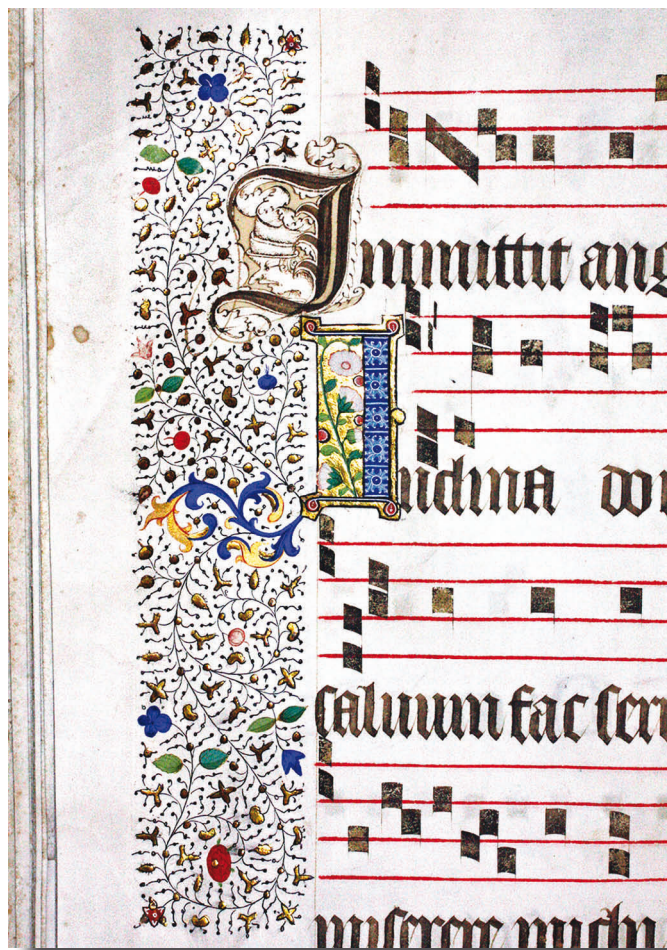 Immittit ang
Inclina do
saluum fac ser
miserere michi